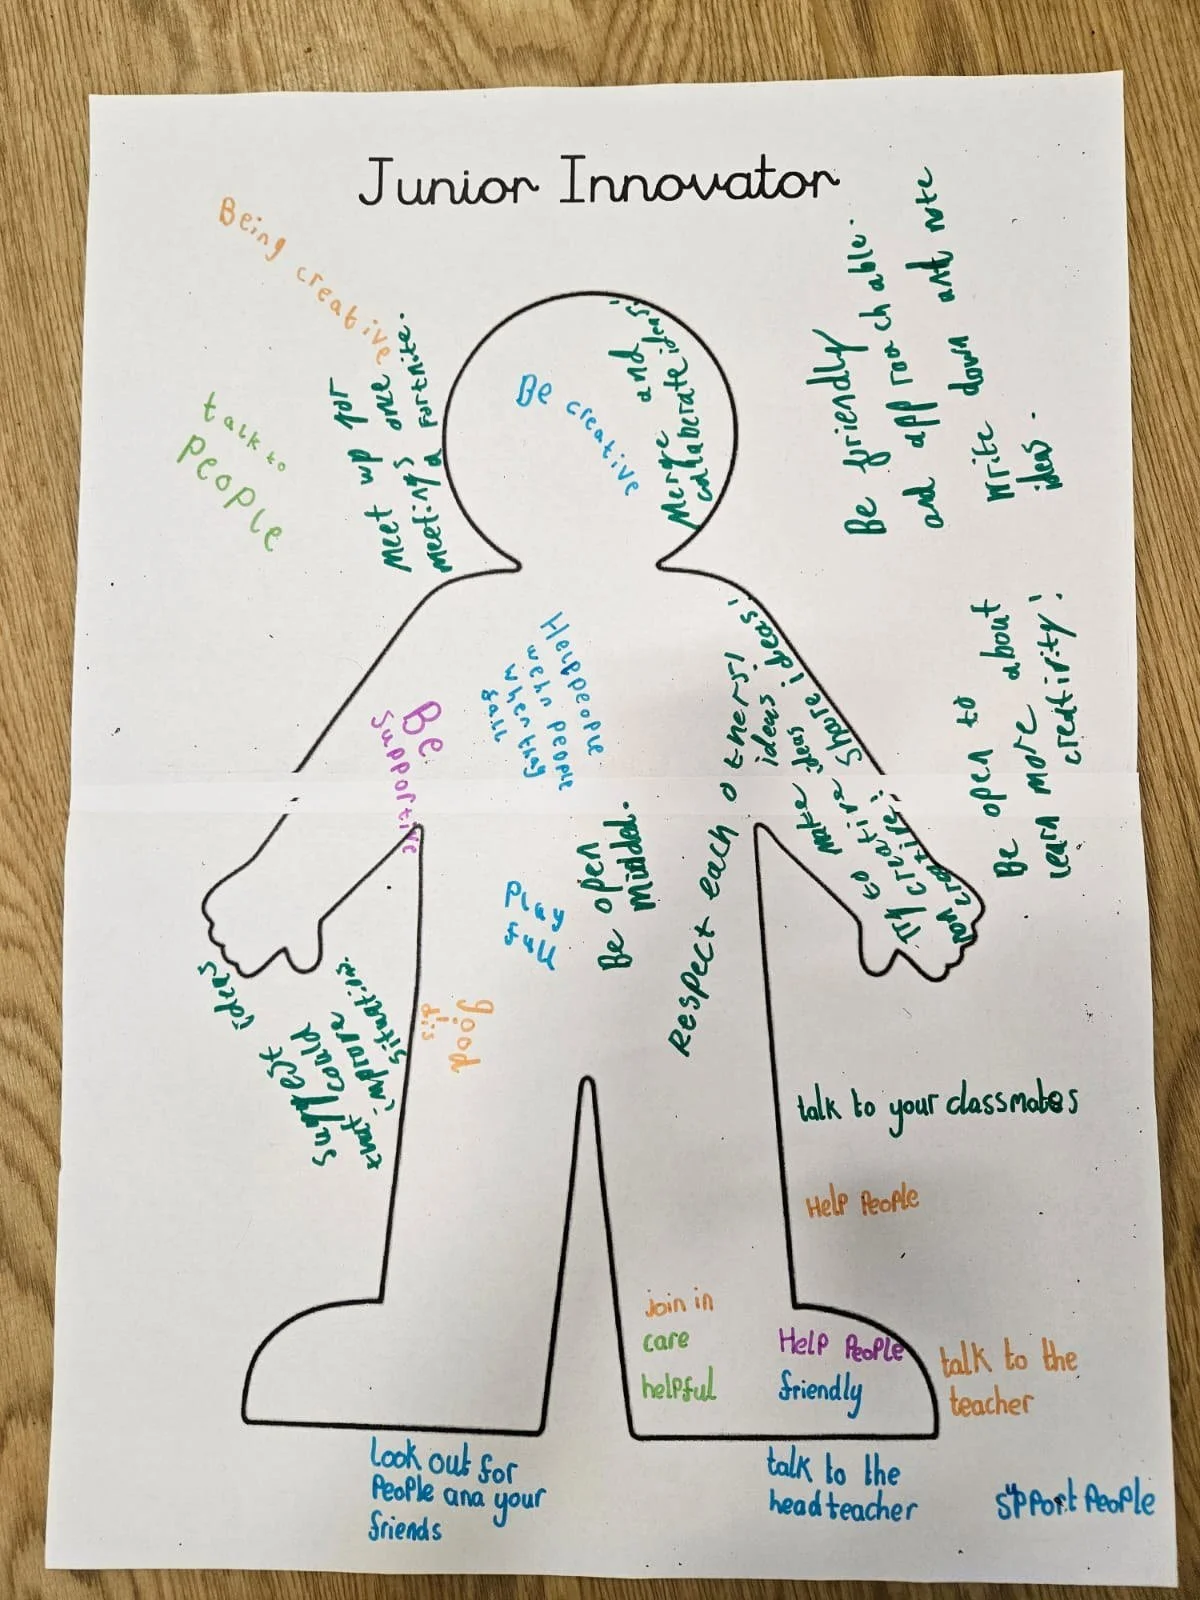 Junior Innovator
Being creative
talk to
people
Meet up for
meetings once
a fortnite.
Be creative
Merge and
collaberate ideas!
Be friendly
and approachable.
Write down and note
ideas.
Help people
wehn people
when they
fall
Be
supportive
Respect each others!
ideas!
make ideas
to share ideas!
Try creative!
Be open to
learn more about
creativity!
Play
full
Be open
midded.
good
suggest ideas
that could
improve
situations.
talk to your classmates
Help People
join in
care
helpful
Help People
friendly
talk to the
teacher
Look out for
People and your
friends
talk to the
headteacher
support People